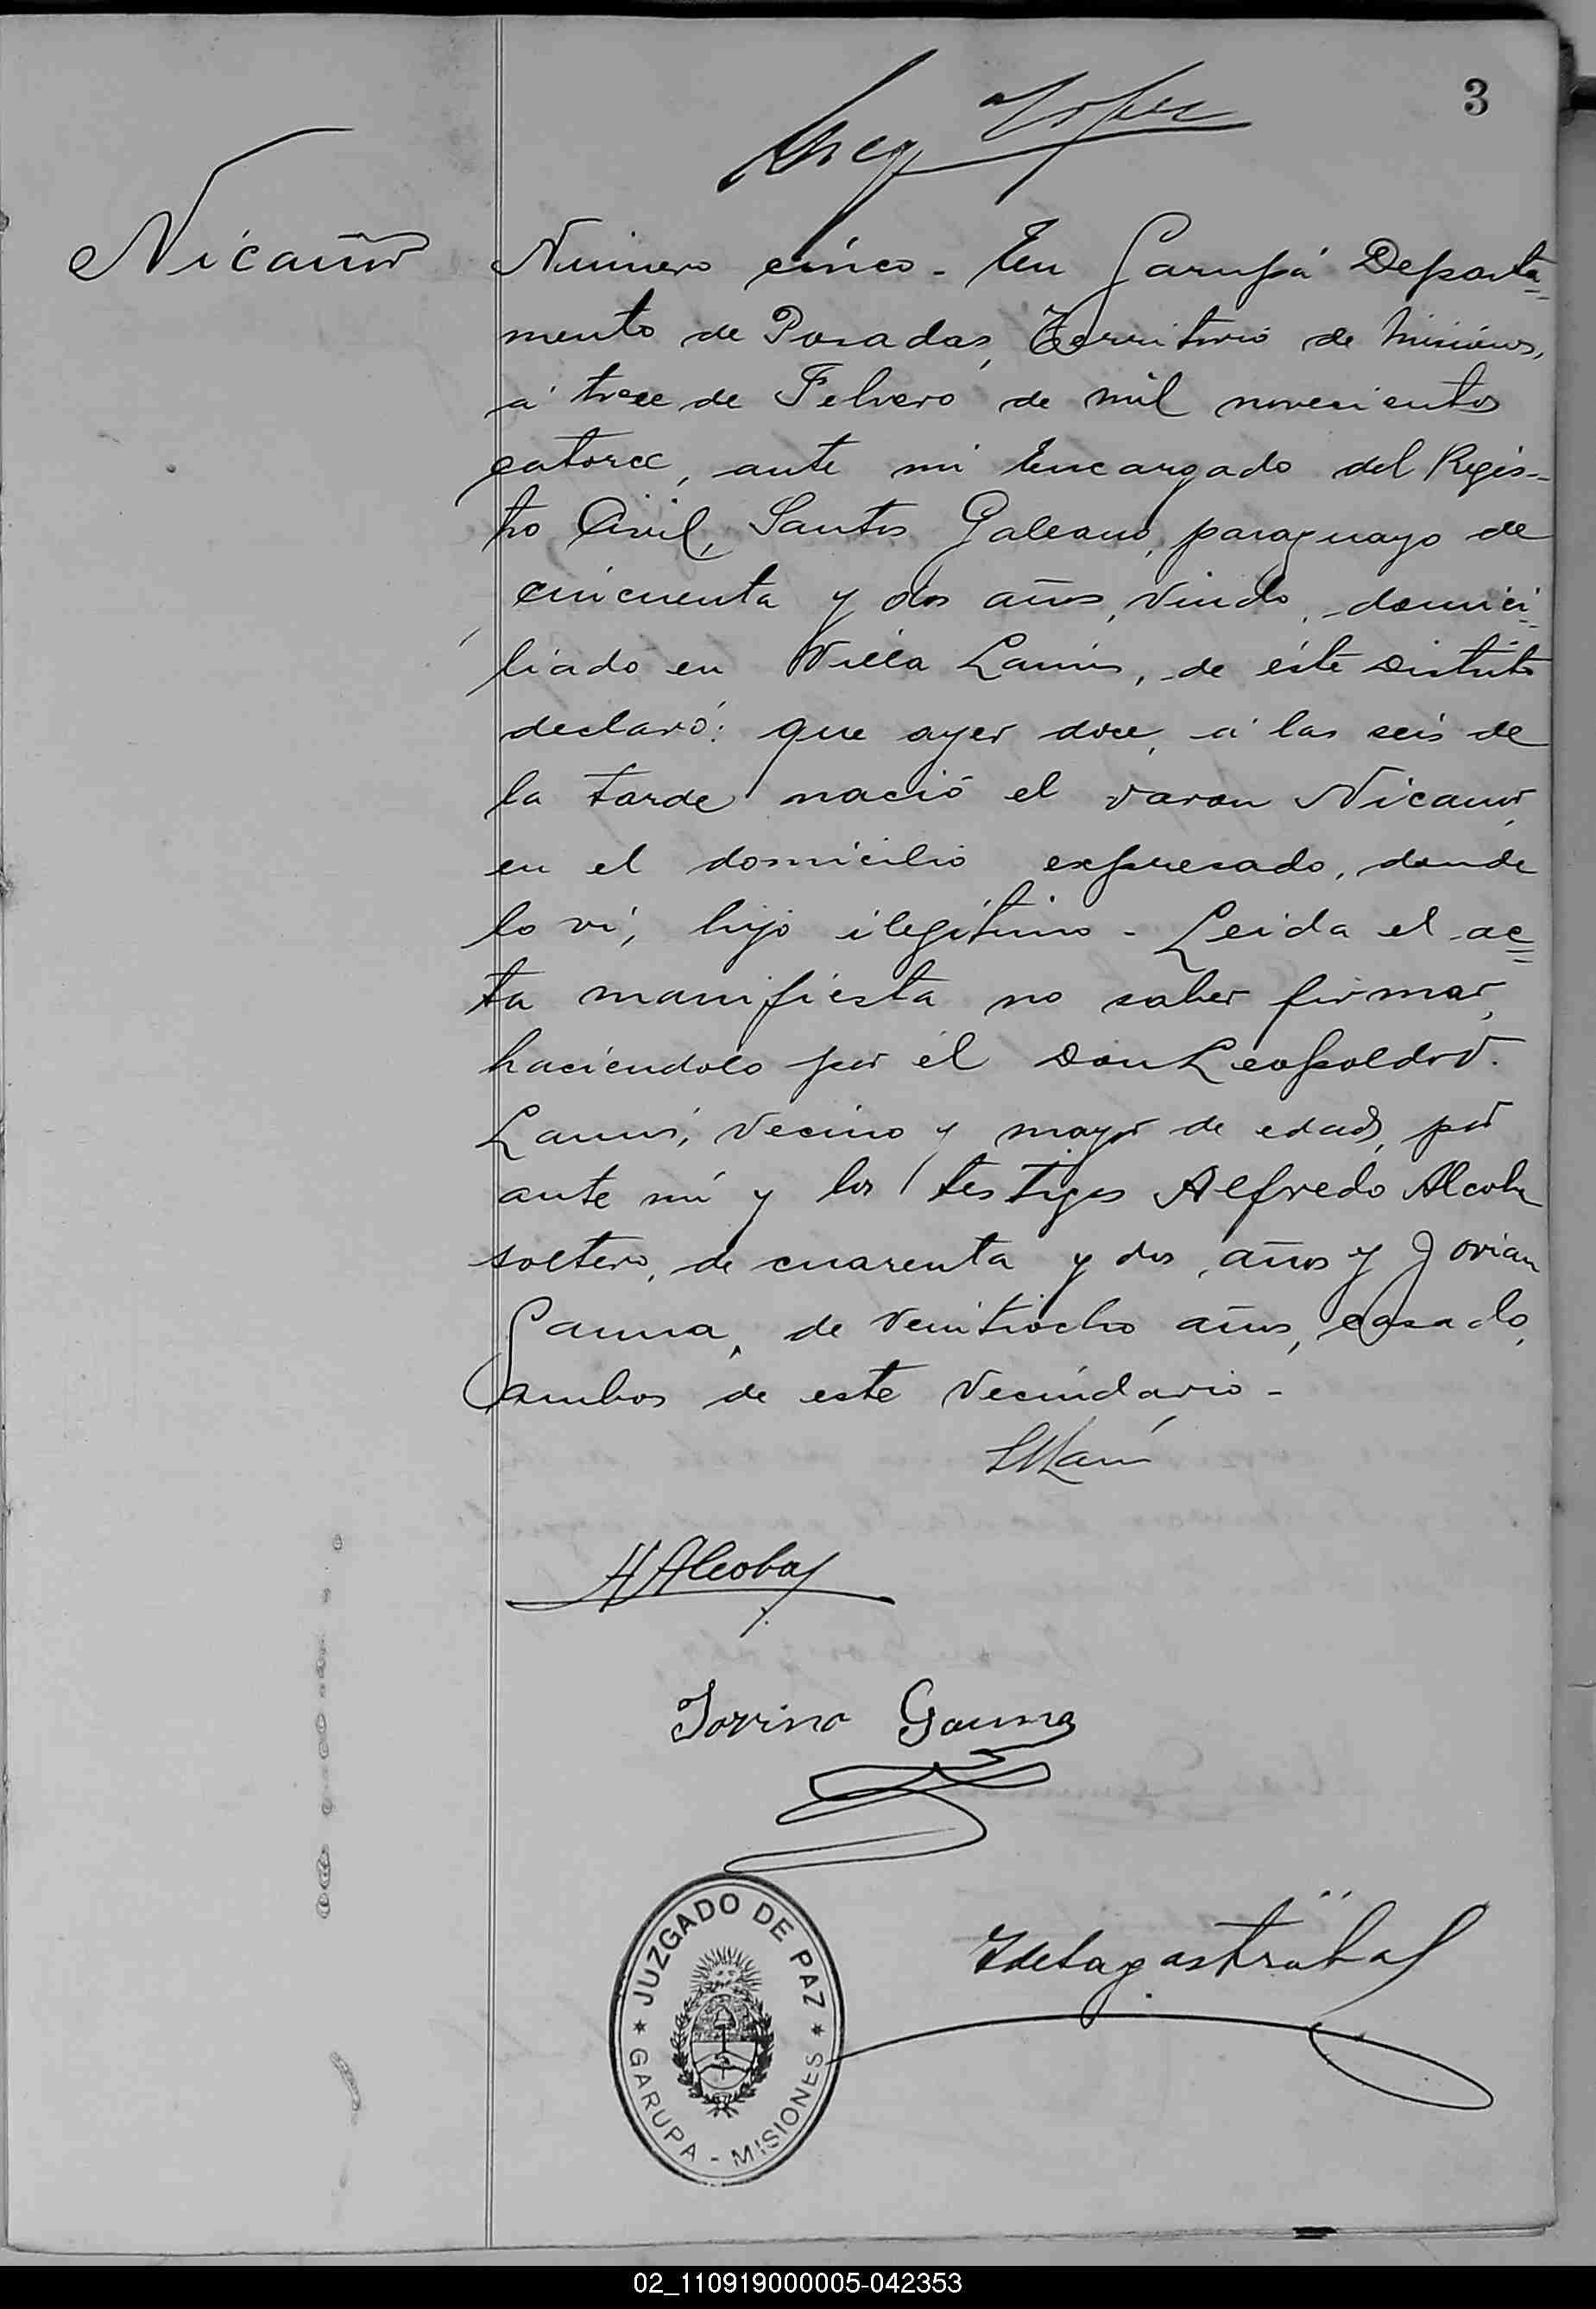 3
Nicanor
Numero cinco - En Garupá Departa=
mento de Posadas, Territorio de Misiones,
á trece de Febrero de mil novecientos
catorce, ante mi Encargado del Regis-
tro Civil, Santos Galeano, paraguayo de
cincuenta y dos años, viudo, domici=
liado en Villa Lanús, de éste Distrito
declaró: que ayer doce, á las seis de
la tarde nació el varon Nicanor,
en el domicilio expresado, donde
lo ví, hijo ilegítimo - Leida el ac=
ta manifiesta no saber firmar,
haciendolo por él Don Leopoldo
Lanús, vecino y mayor de edad, por
ante mí y los testigos Alfredo Alcoba
soltero, de cuarenta y dos años y Jovian
Gauna, de veintiocho años, casado,
ambos de este vecindario -
AAlcoba
Jovino Gauna
JUZGADO DE PAZ
GARUPA - MISIONES
02_110919000005-042353